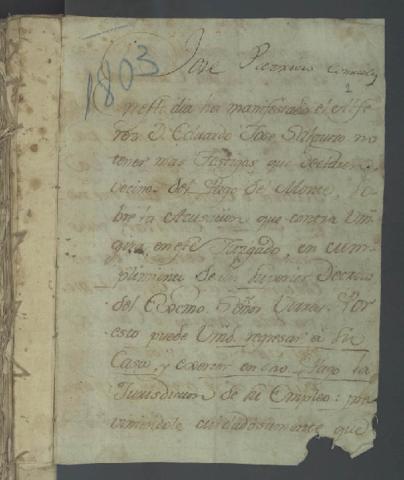 1803
Jose
1
En este dia ha manifestado el Alfe
res D. Eduardo Jose Salguero no
tener mas Testigos que declaren
vecinos del Pago de Monte, so
bre la Acusacion que contra Vm.
en este Juzgado, en cum
plimiento de un Superior Decreto
del Excmo. Señor Virrey. Por
esto puede Vmd. regresar a su
Casa, y exercer en ese Pago la
Jurisdicion de su Empleo: pre
viniendole cuidadosamente que